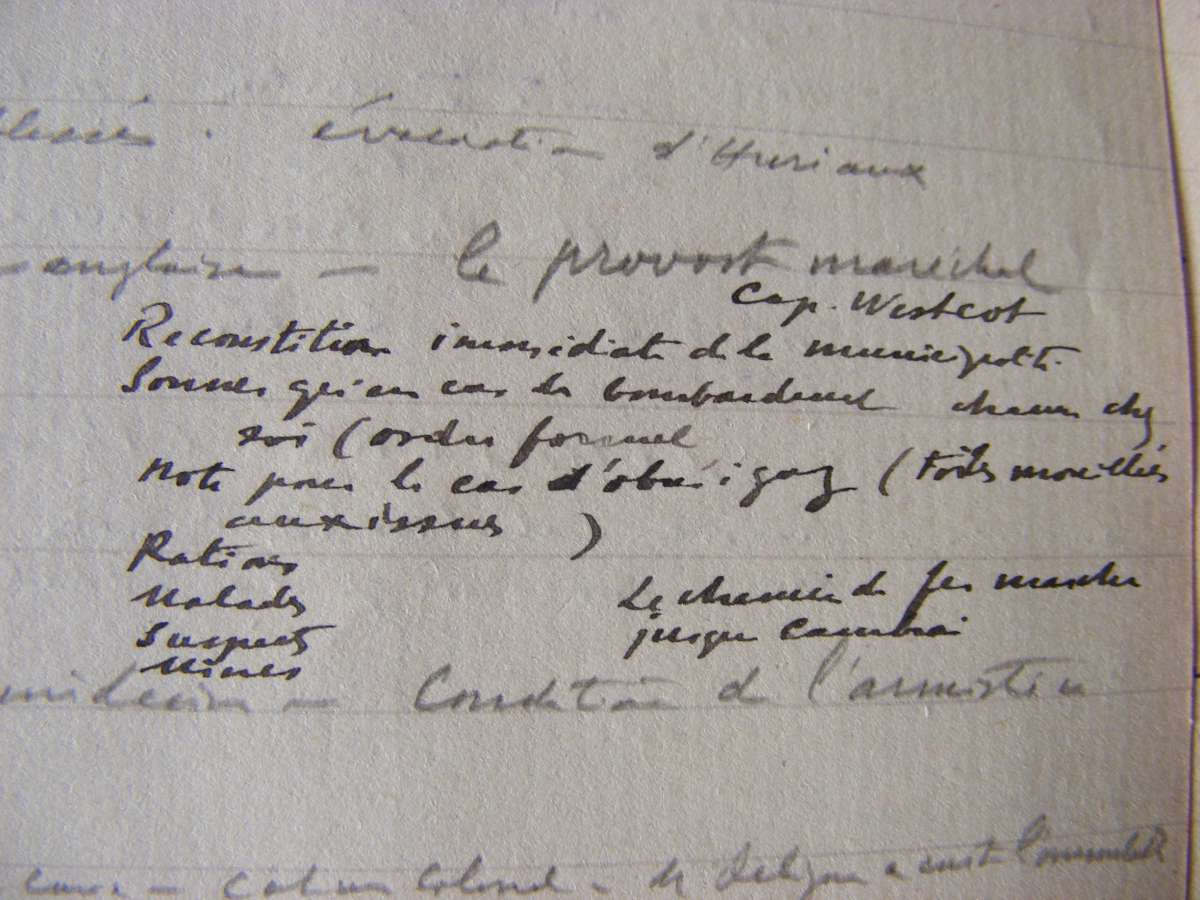 blessés. évacuation d'Huriaux
anglaise — le provost maréchal
Cap. Westcot
Reconstitution immédiate de la municipalt.
Sonner qu'en cas de bombardement chacun chez
soi (ordre formel
Note pour le cas d'obus à gaz (toiles mouillées
aux issues )
Rations
Malades
Suspects
Mines
Le chemin de fer marche
jusque Cambrai
médecin — Condition d l'armistice
— M